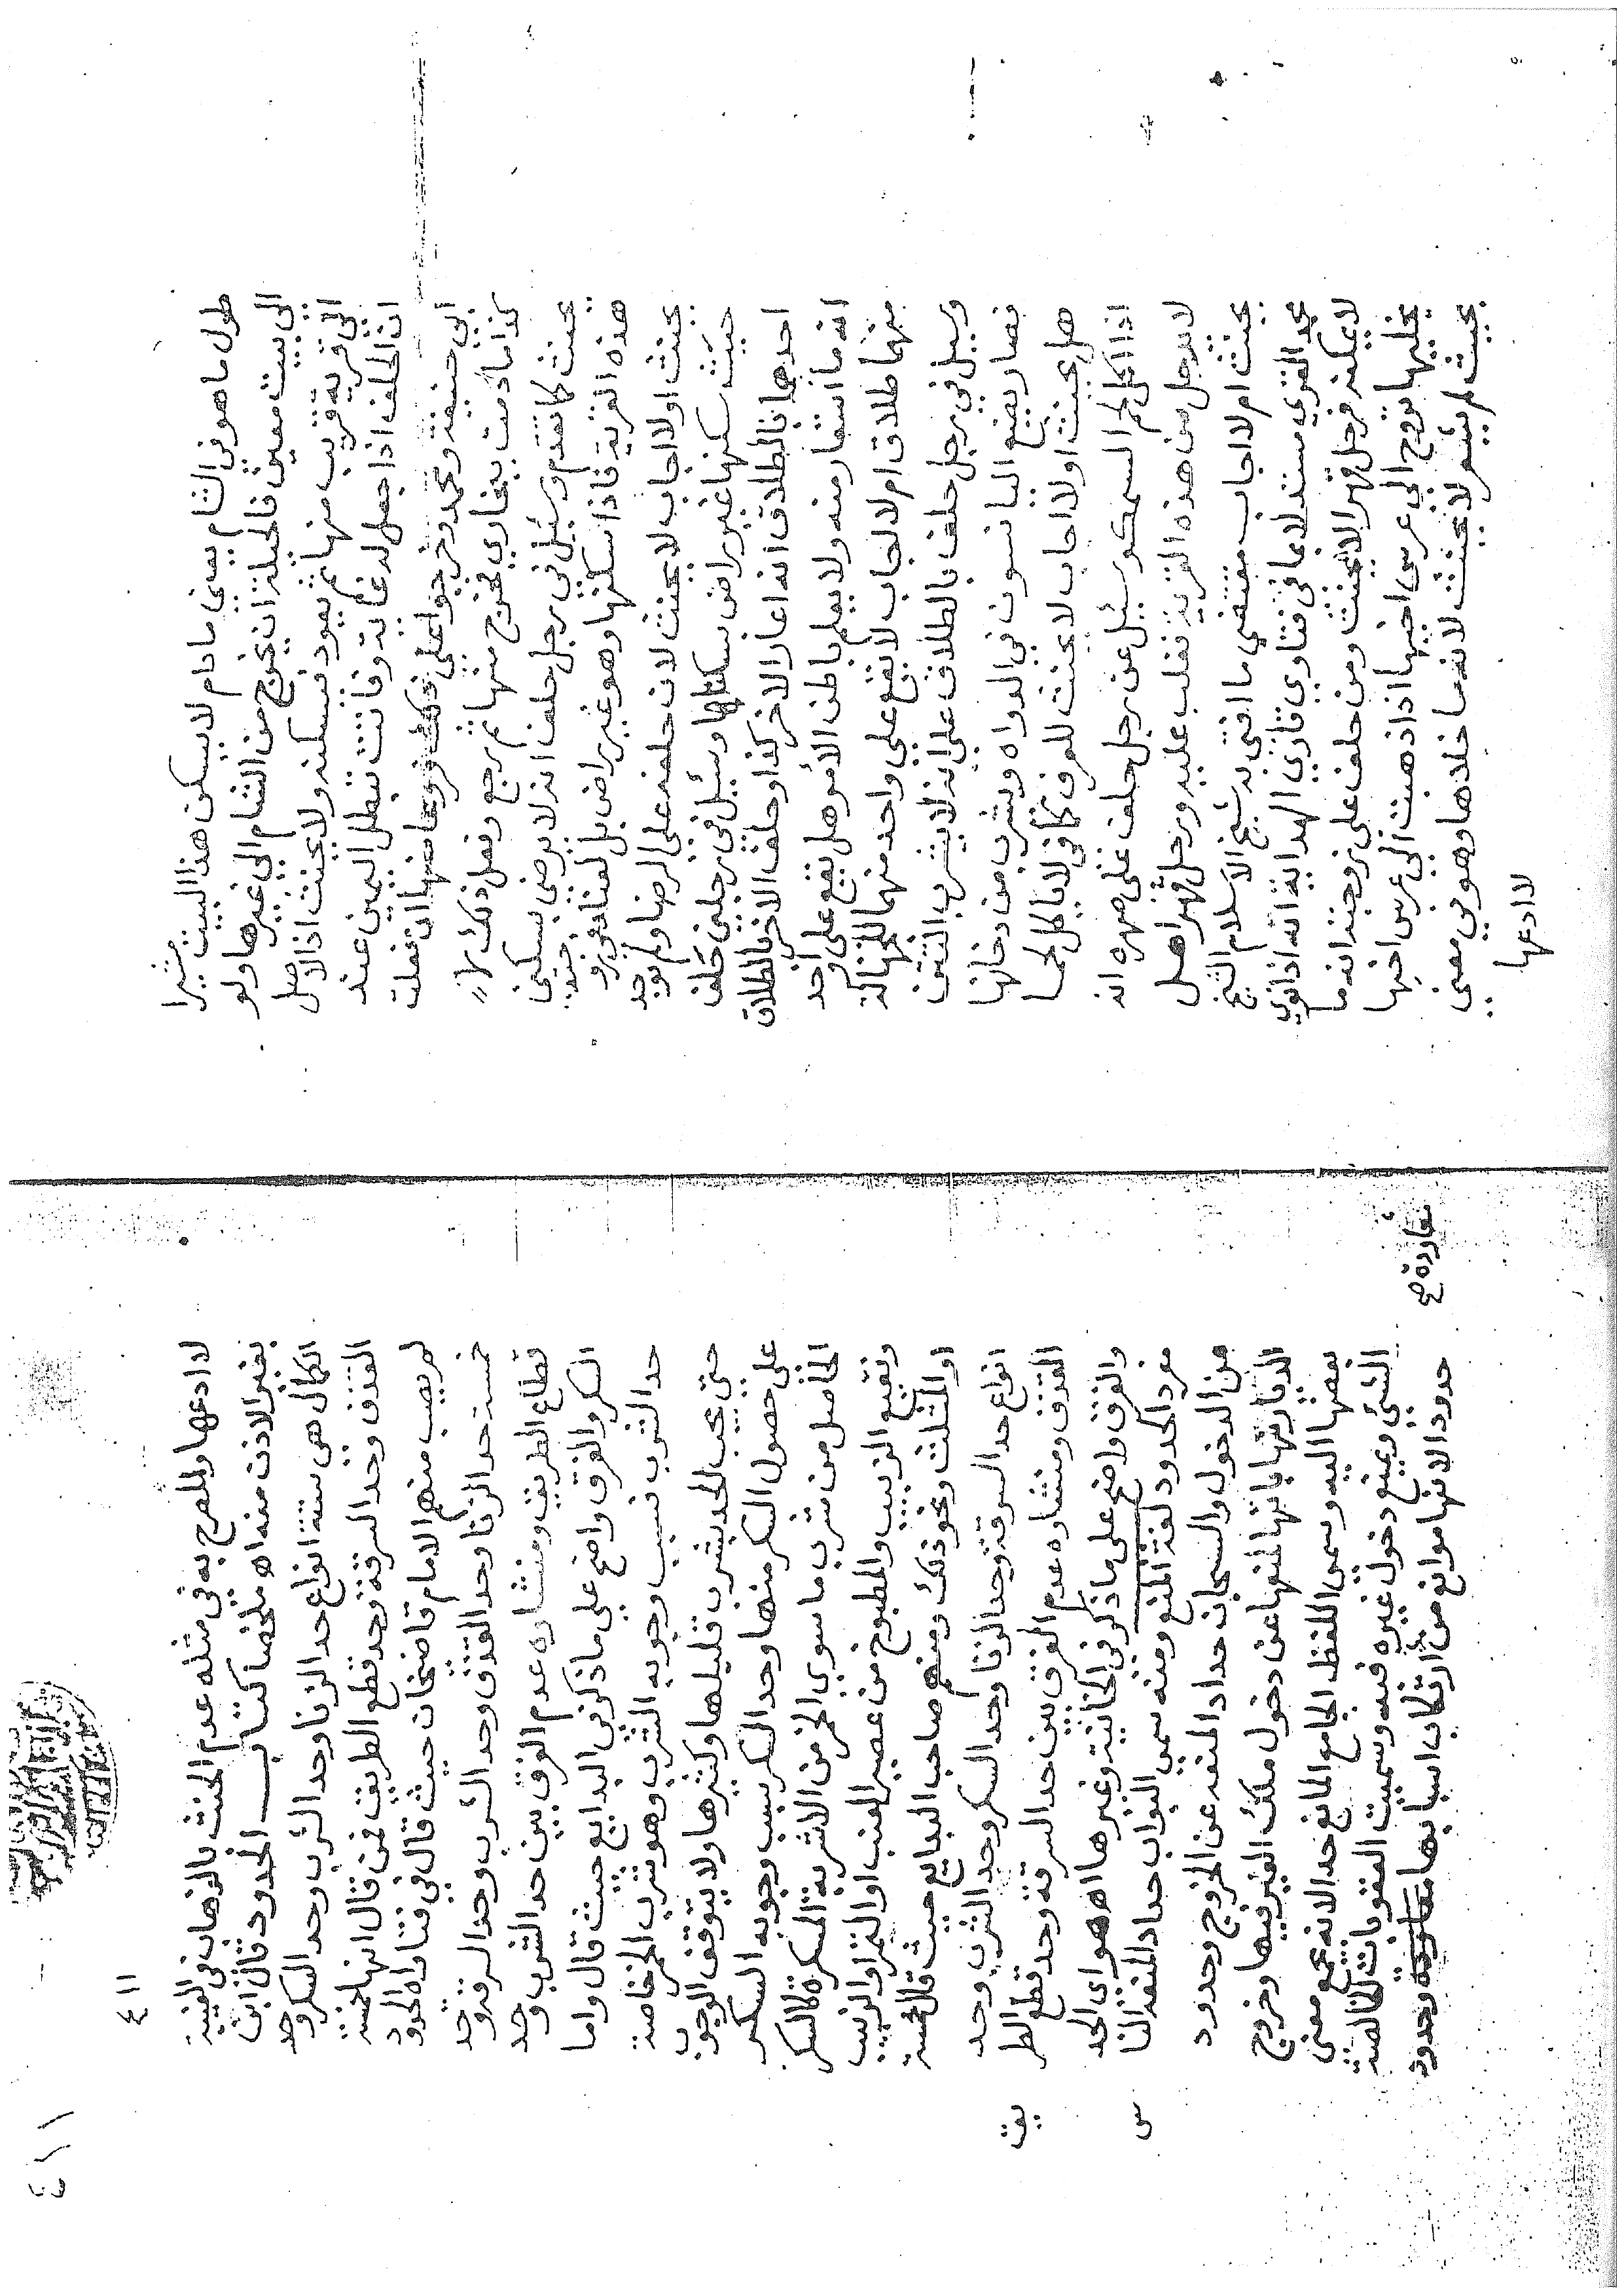 طول ما هو في الشام يعني ما دام لا يسكن هذا البيت مشيرا
الى بيت معين فالحيلة ان يخرج من الشام الى غيرها ولو
الى قرية قريب منها ثم يعود فيسكنه ولا يحنث اذ الاصل
ان الحلف اذا جعل له غاية وفاتت تبطل اليمين عند
ابي حنيفة ومحمد وخرجوا على ذلك فروعا منها ان فعلت
كذا ما دمت ببخاري فخرج منها ثم رجع وفعل ذلك لا
يحنث كما تقدم وسئل في رجل حلف انه لا يرضى بسكنى
هذه القرية فاذا سكنها وهو غير راض بل لعناد غيره
يحنث اولا اجاب لا يحنث لان حلفه على الرضا ولم يوجد حينئذ
حيث سكنها غير راض بسكناها وسئل في رجلين حلف
احدهما بالطلاق انه اعار الاخر كذا وحلف الاخر بالطلاق
انه ما استعار منه ولا يعلم باطن الامر هل يقع على احد
منهما طلاق ام لا اجاب لا يقع على واحد منهما للجهالة
وسيل في رجل حلف بالطلاق على انه لا يشرب التتن
فصار يضع اليانسون في الدواه ويشرب من دخانها
هل يحنث اولا اجاب لا يحنث للعرف كما في لا ياكل لحما
اذا اكل لحم السمك وسئل عن رجل حلف على صهره انه
لا يدخل من هذه القرية فغلب عليه ودخل قهرا هل
يحنث ام لا اجاب مقتضى ما افتى به شيخ الاسلام الشيخ
محمد الغزي مستدلا بما في فتاوي قاري الهداية انه اذا نوي
لا يمكنه فدخل قهرا لا يحنث ومن حلف على زوجته انه ما
يخليها تروح الى عرس اخيها اذا ذهبت الى عرس اخيها
بحيث لم يشعر لا يحنث لانه ما خلاها وهو في معنى
لا ادعها
٤١١
لا ادعها والمصرح به في مثله عدم الحنث بالذهاب في الغيبة
بغير الاذن منه اه ملخصا كتاب الحدود قال ابن
الكمال هى ستة انواع حد الزنا وحد الشرب وحد السكر وحد
القذف وحد السرقة وحد قطع الطريق فمن قال انها خمسة
لم يصب منهم الامام قاضيخان حيث قال في فتاواه الحدود
خمسة حد الزنا وحد القذف وحد الشرب وحد السرقة وحد
قطاع الطريق ومنشاره عدم الفرق بين حد الشرب وحد
السكر والفرق واضح على ما ذكر في البدايع حيث قال واما
حد الشرب فسبب وجوبه الشرب وهو شرب الخمر خاصة
حتى يجب الحد بشرب قليلها وكثيرها ولا يتوقف الوجوب
على حصول السكر منها وحد السكر سبب وجوبه السكر
الحاصل من شرب ما سوى الخمر من الاشربة المسكرة كالسكر
ونقيع الزبيب والمطبوخ من عصير العنب او التمر او الزبيب
او المثلث ونحو ذلك ومنهم صاحب البدايع حيث قال خمسة
انواع حد السرقة وحد الزنا وحد السكر وحد الشرب وحد
القذف ومنشاره عدم الفرق بين حد السرقة وحد قطع الطر
يق
والفرق واضح على ما ذكر في الخانية وغيرها اه هو اى الحد
مفرد الحدود لغة المنع ومنه سمى البواب حدادا لمنعه النا
س
من الدخول والسجان حداد المنعه عن الخروج وحدود
الديار نهاياتها لمنعها عن دخول ملك الغير فيها وخروج
بعضها اليه وسمى اللفظ الجامع المانع حدا لانه يجمع معنى
الشئ ويمنع دخول غيره فيه وسميت العقوبات الخالصة
حدودا لانها موانع من ارتكاب اسبابها وحدود